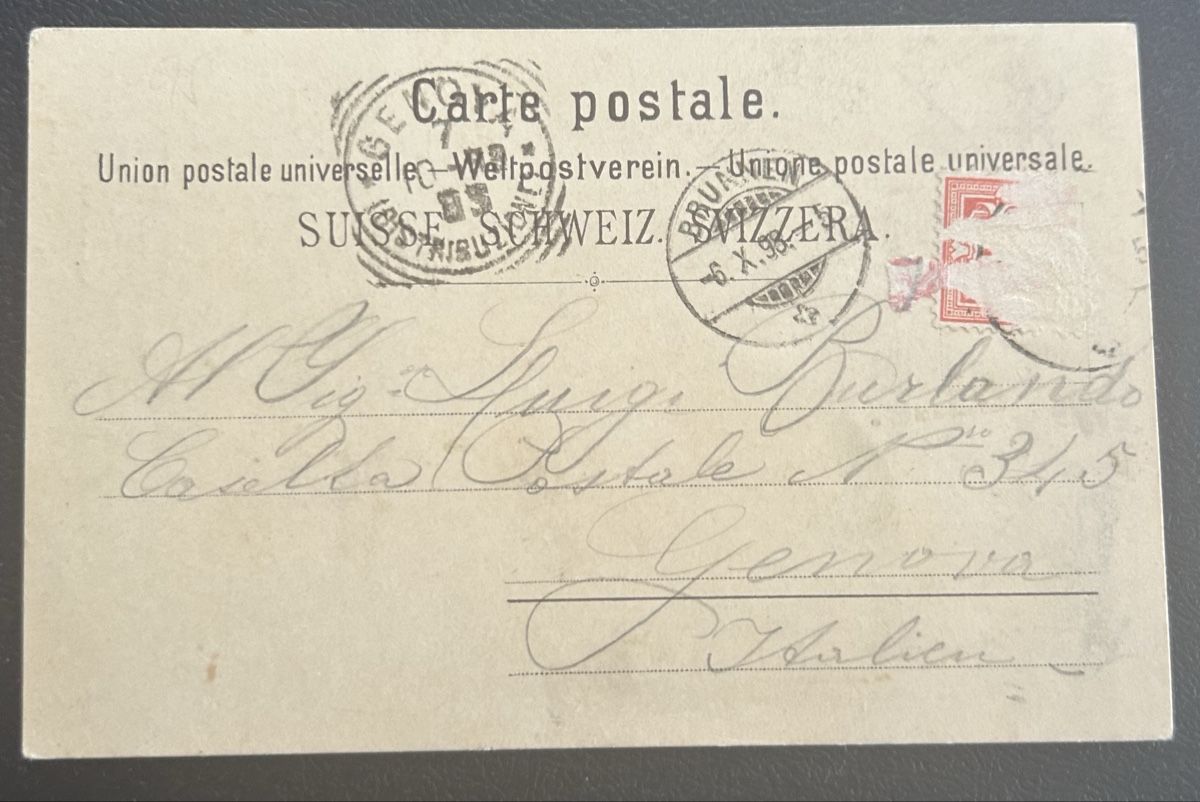 Carte postale.
Union postale universelle. — Weltpostverein. — Unione postale universale.
SUISSE. SCHWEIZ. SVIZZERA.
GENOVA
7
10-98
8S
DISTRIBUZIONE
BRUNNEN
-6.X.98.
Al Sig.or Luigi Burlando
Casella Postale No 345
Genova
Italien